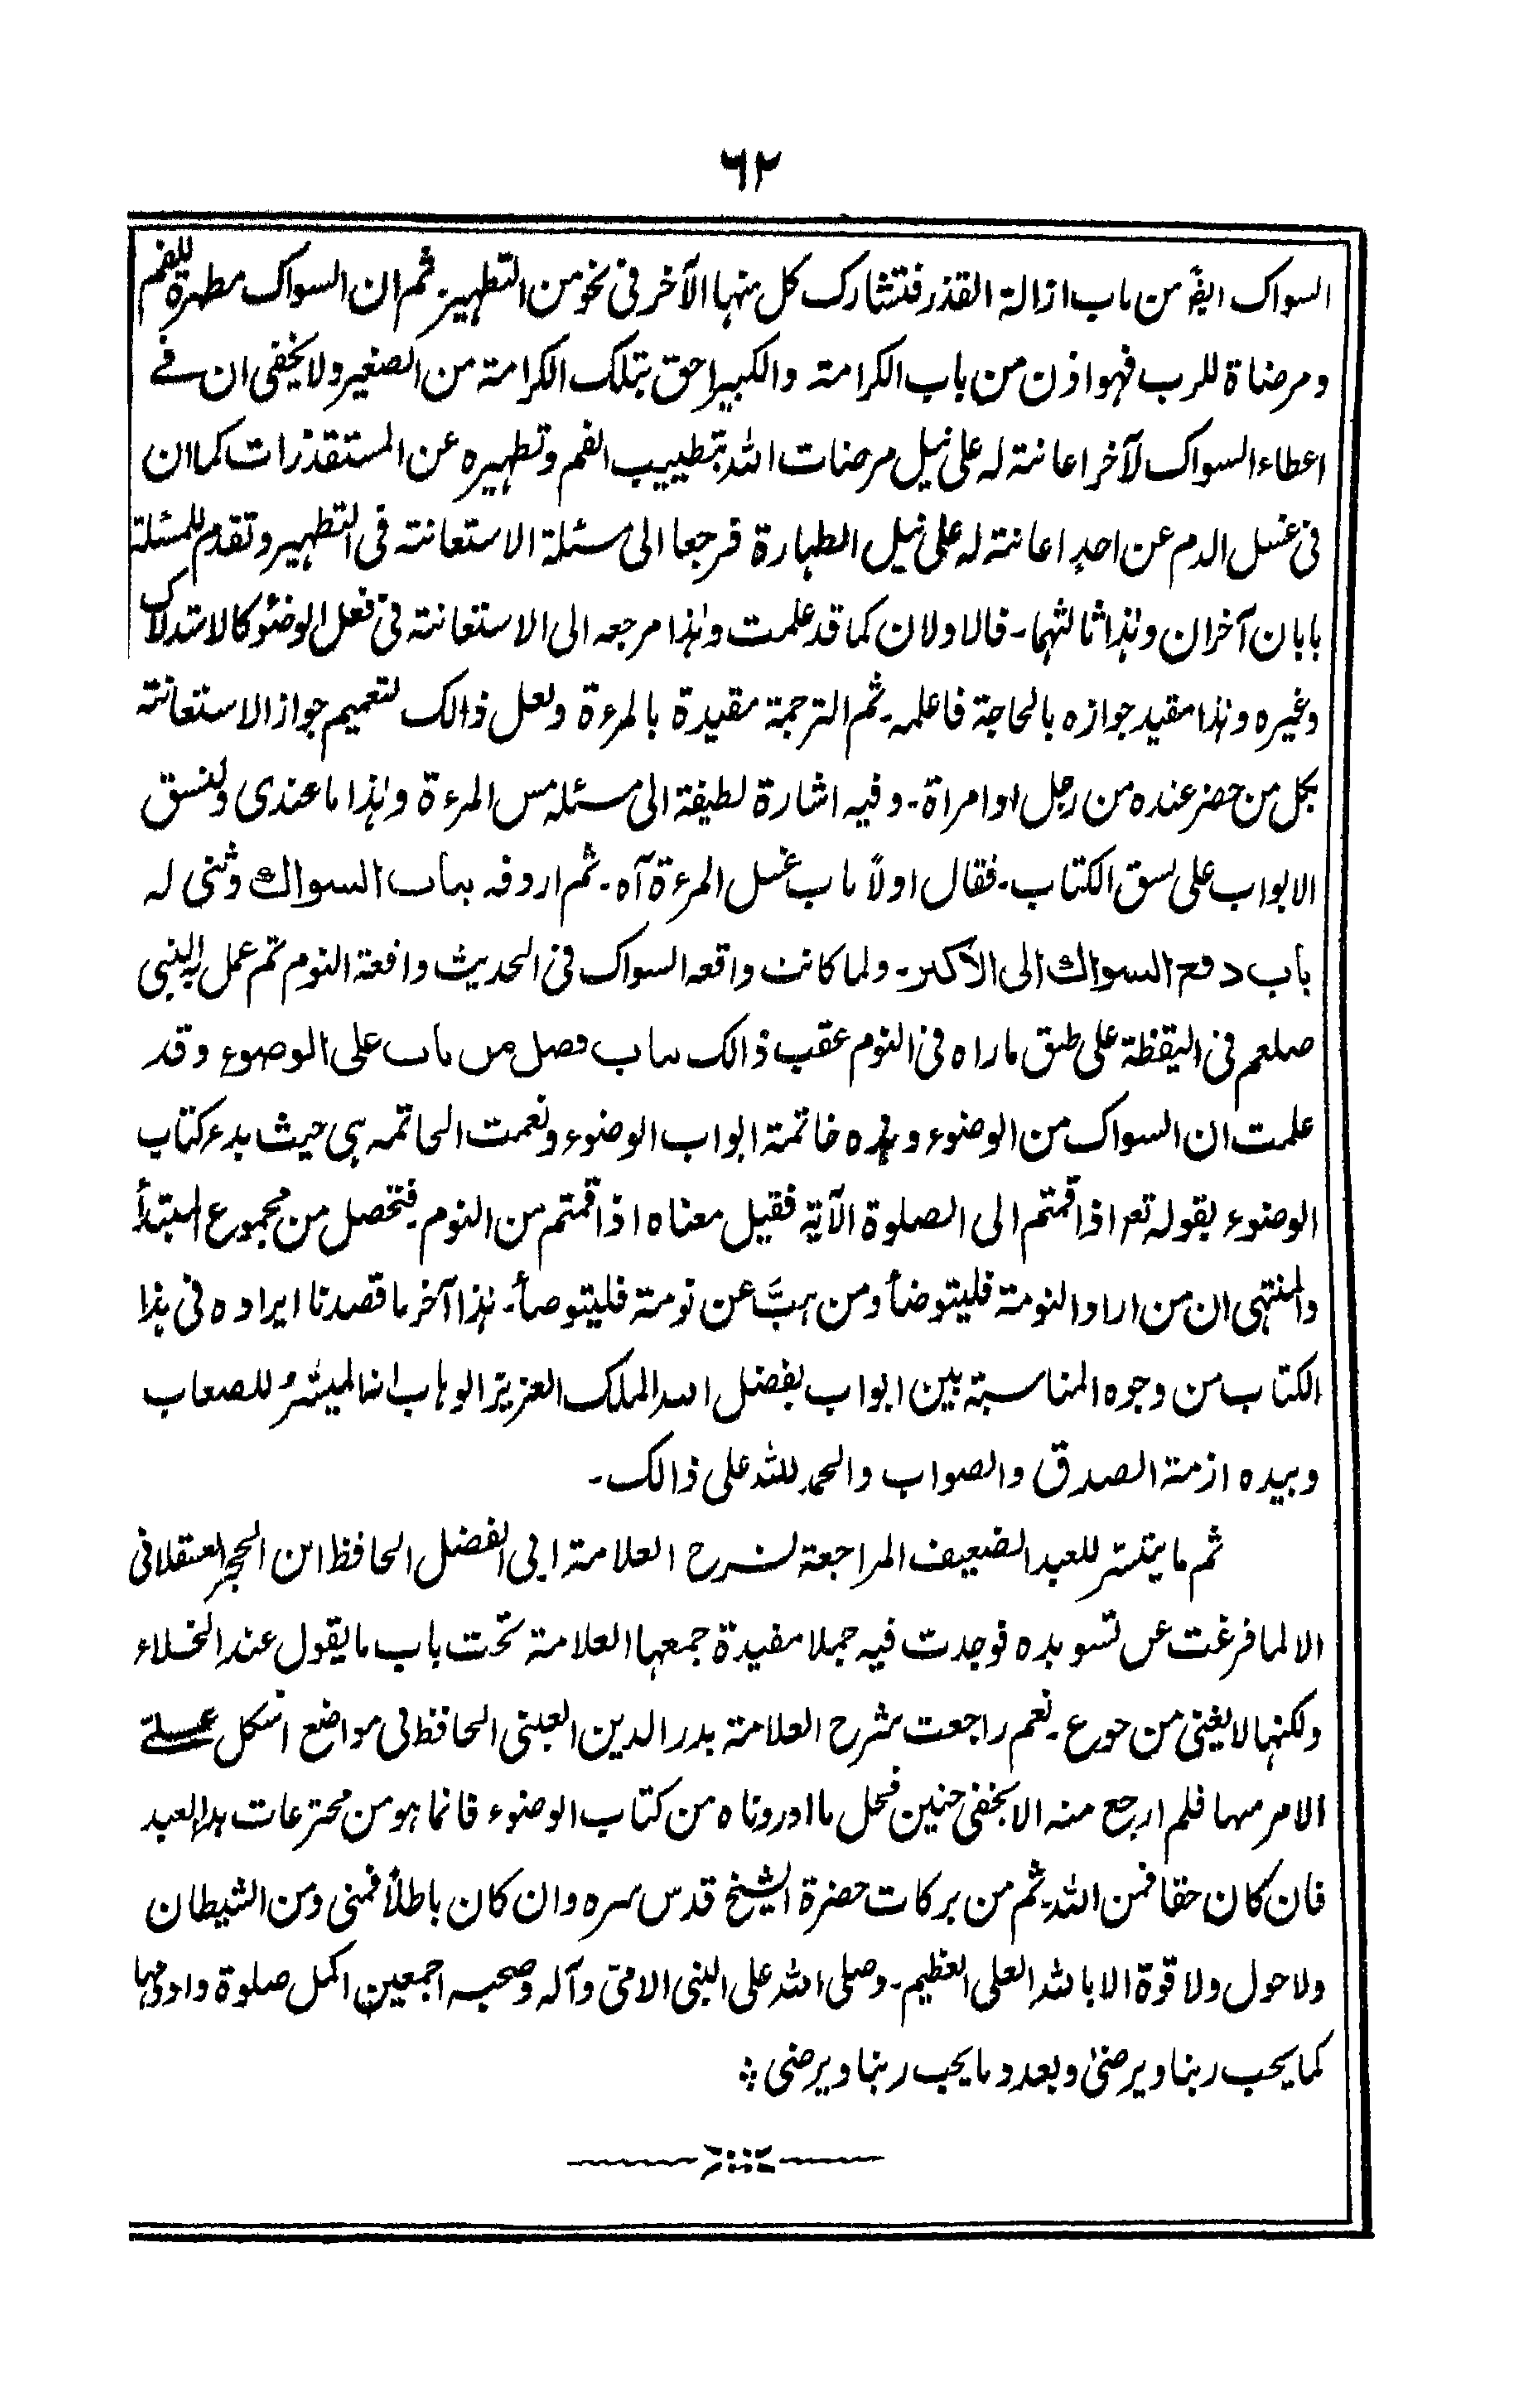 ٦٢
السواک ایضًا من باب ازالة القذر فتشارک کل منہا الآخر فی نحو من التطہیر۔ ثم ان السواک مطہرة للفم
ومرضاة للرب فہو اذن من باب الکرامتہ والکبیر احق بتلک الکرامتہ من الصغیر ولا یخفی ان فے
اعطاء السواک لآخر اعانتہ لہ علی نیل مرضات اللہ بتطییب الفم وتطہیرہ عن المستقذرات کما ان
فی غسل الدم عن احدٍ اعانتہ لہ علی نیل الطہارة فرجعا الی مسئلة الاستعانتہ فی التطہیر وتقدم للمسئلة
بابان آخران وہذا ثالثہما۔ فالاولان کما قد علمت وہذا مرجعہ الی الاستعانتہ فی فعل الوضئو کالاستدلاک
وغیرہ وہذا مقید جوازہ بالحاجة فاعلمہ۔ ثم الترجمة مقیدة بالمرءة ولعل ذالک لتعمیم جواز الاستعانتہ
بکل من حضر عندہ من رجل او امراة۔ وفیہ اشارة لطیفة الی مسئلہ مس المرءة وہذا ما عندی ولنسق
الابواب علی نسق الکتاب۔ فقال اولاً باب غسل المرءة آہ۔ ثم اردفہ بباب السواك وثنی لہ
باب دفع السواك الی الاکبر۔ ولما کانت واقعہ السواک فی الحدیث واقعة النوم ثم عمل بہ النبی
صلعم فی الیقظة علی طبق ما راہ فی النوم عقب ذالک بباب فصل من بات علی الوضوء وقد
علمت ان السواک من الوضوء وہذہ خاتمة ابواب الوضوء ونعمت الخاتمہ ہی حیث بدء کتاب
الوضوء بقولہ تعہ اذا قمتم الی الصلوة الآیة فقیل معناہ اذا قمتم من النوم۔ فتحصل من مجموع المبتدأ
والمنتہی ان من اراد النومتہ فلیتوضأ ومن ہبَّ عن نومتہ فلیتوضأ۔ ہذا آخر ما قصدنا ایرادہ فی ہذا
الکتاب من وجوہ المناسبة بین ابواب بفضل اللہ الملک العزیز الوہاب انہ المیسّر للصعاب
وبیدہ ازمتہ الصدق والصواب والحمد للہ علی ذالک۔
ثم ما تیسّر للعبد الضعیف المراجعة لشرح العلامتہ ابی الفضل الحافظ ابن الحجر العسقلانی
الا لما فرغت عن تسویدہ فوجدت فیہ جملا مفیدة جمعہا العلامتہ تحت باب ما یقول عند الخلاء
ولکنہا لا یغنی من جوع۔ نعم راجعت شرح العلامتہ بدر الدین العینی الحافظ فی مواضع اشکل علےّ
الامر منہا فلم ارجع منہ الا بخفی حنین فکل ما اوردناہ من کتاب الوضوء فانما ہو من مخترعات ہذا العبد
فان کان حقا فمن اللہ۔ ثم من برکات حضرة الشیخ قدس سرہ وان کان باطلاً فمنی ومن الشیطان
ولا حول ولا قوة الا باللہ العلی العظیم۔ وصلی اللہ علی النبی الامی وآلہ وصحبہ اجمعین اکمل صلوة وادومہا
کما یحب ربنا ویرضیٰ وبعدد ما یحب ربنا ویرضی